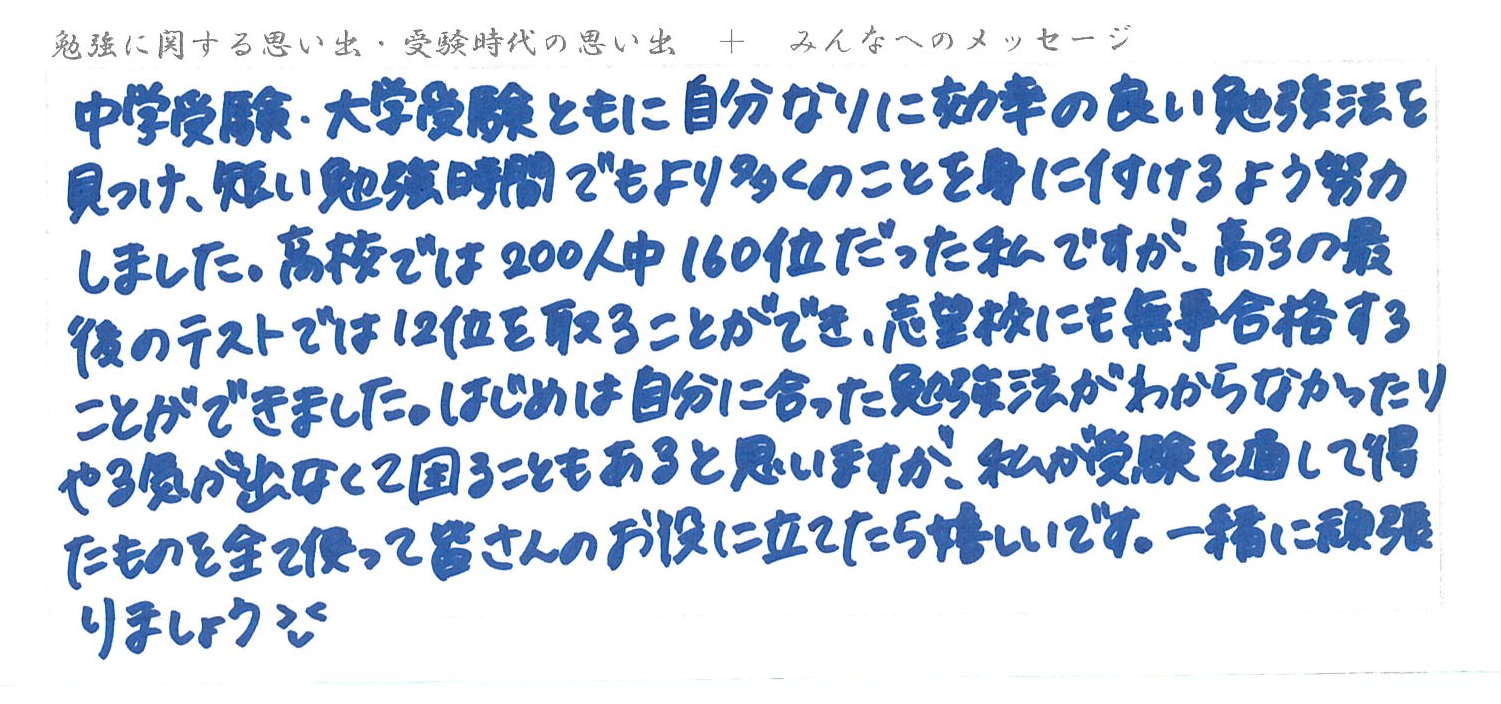 勉強に関する思い出・受験時代の思い出　＋　みんなへのメッセージ
中学受験・大学受験ともに自分なりに効率の良い勉強法を
見つけ、短い勉強時間でもより多くのことを身に付けるよう努力
しました。高校では200人中160位だった私ですが、高3の最
後のテストでは12位を取ることができ、志望校にも無事合格する
ことができました。はじめは自分に合った勉強法がわからなかったり
やる気が出なくて困ることもあると思いますが、私が受験を通して得
たものを全て使って皆さんのお役に立てたら嬉しいです。一緒に頑張
りましょう